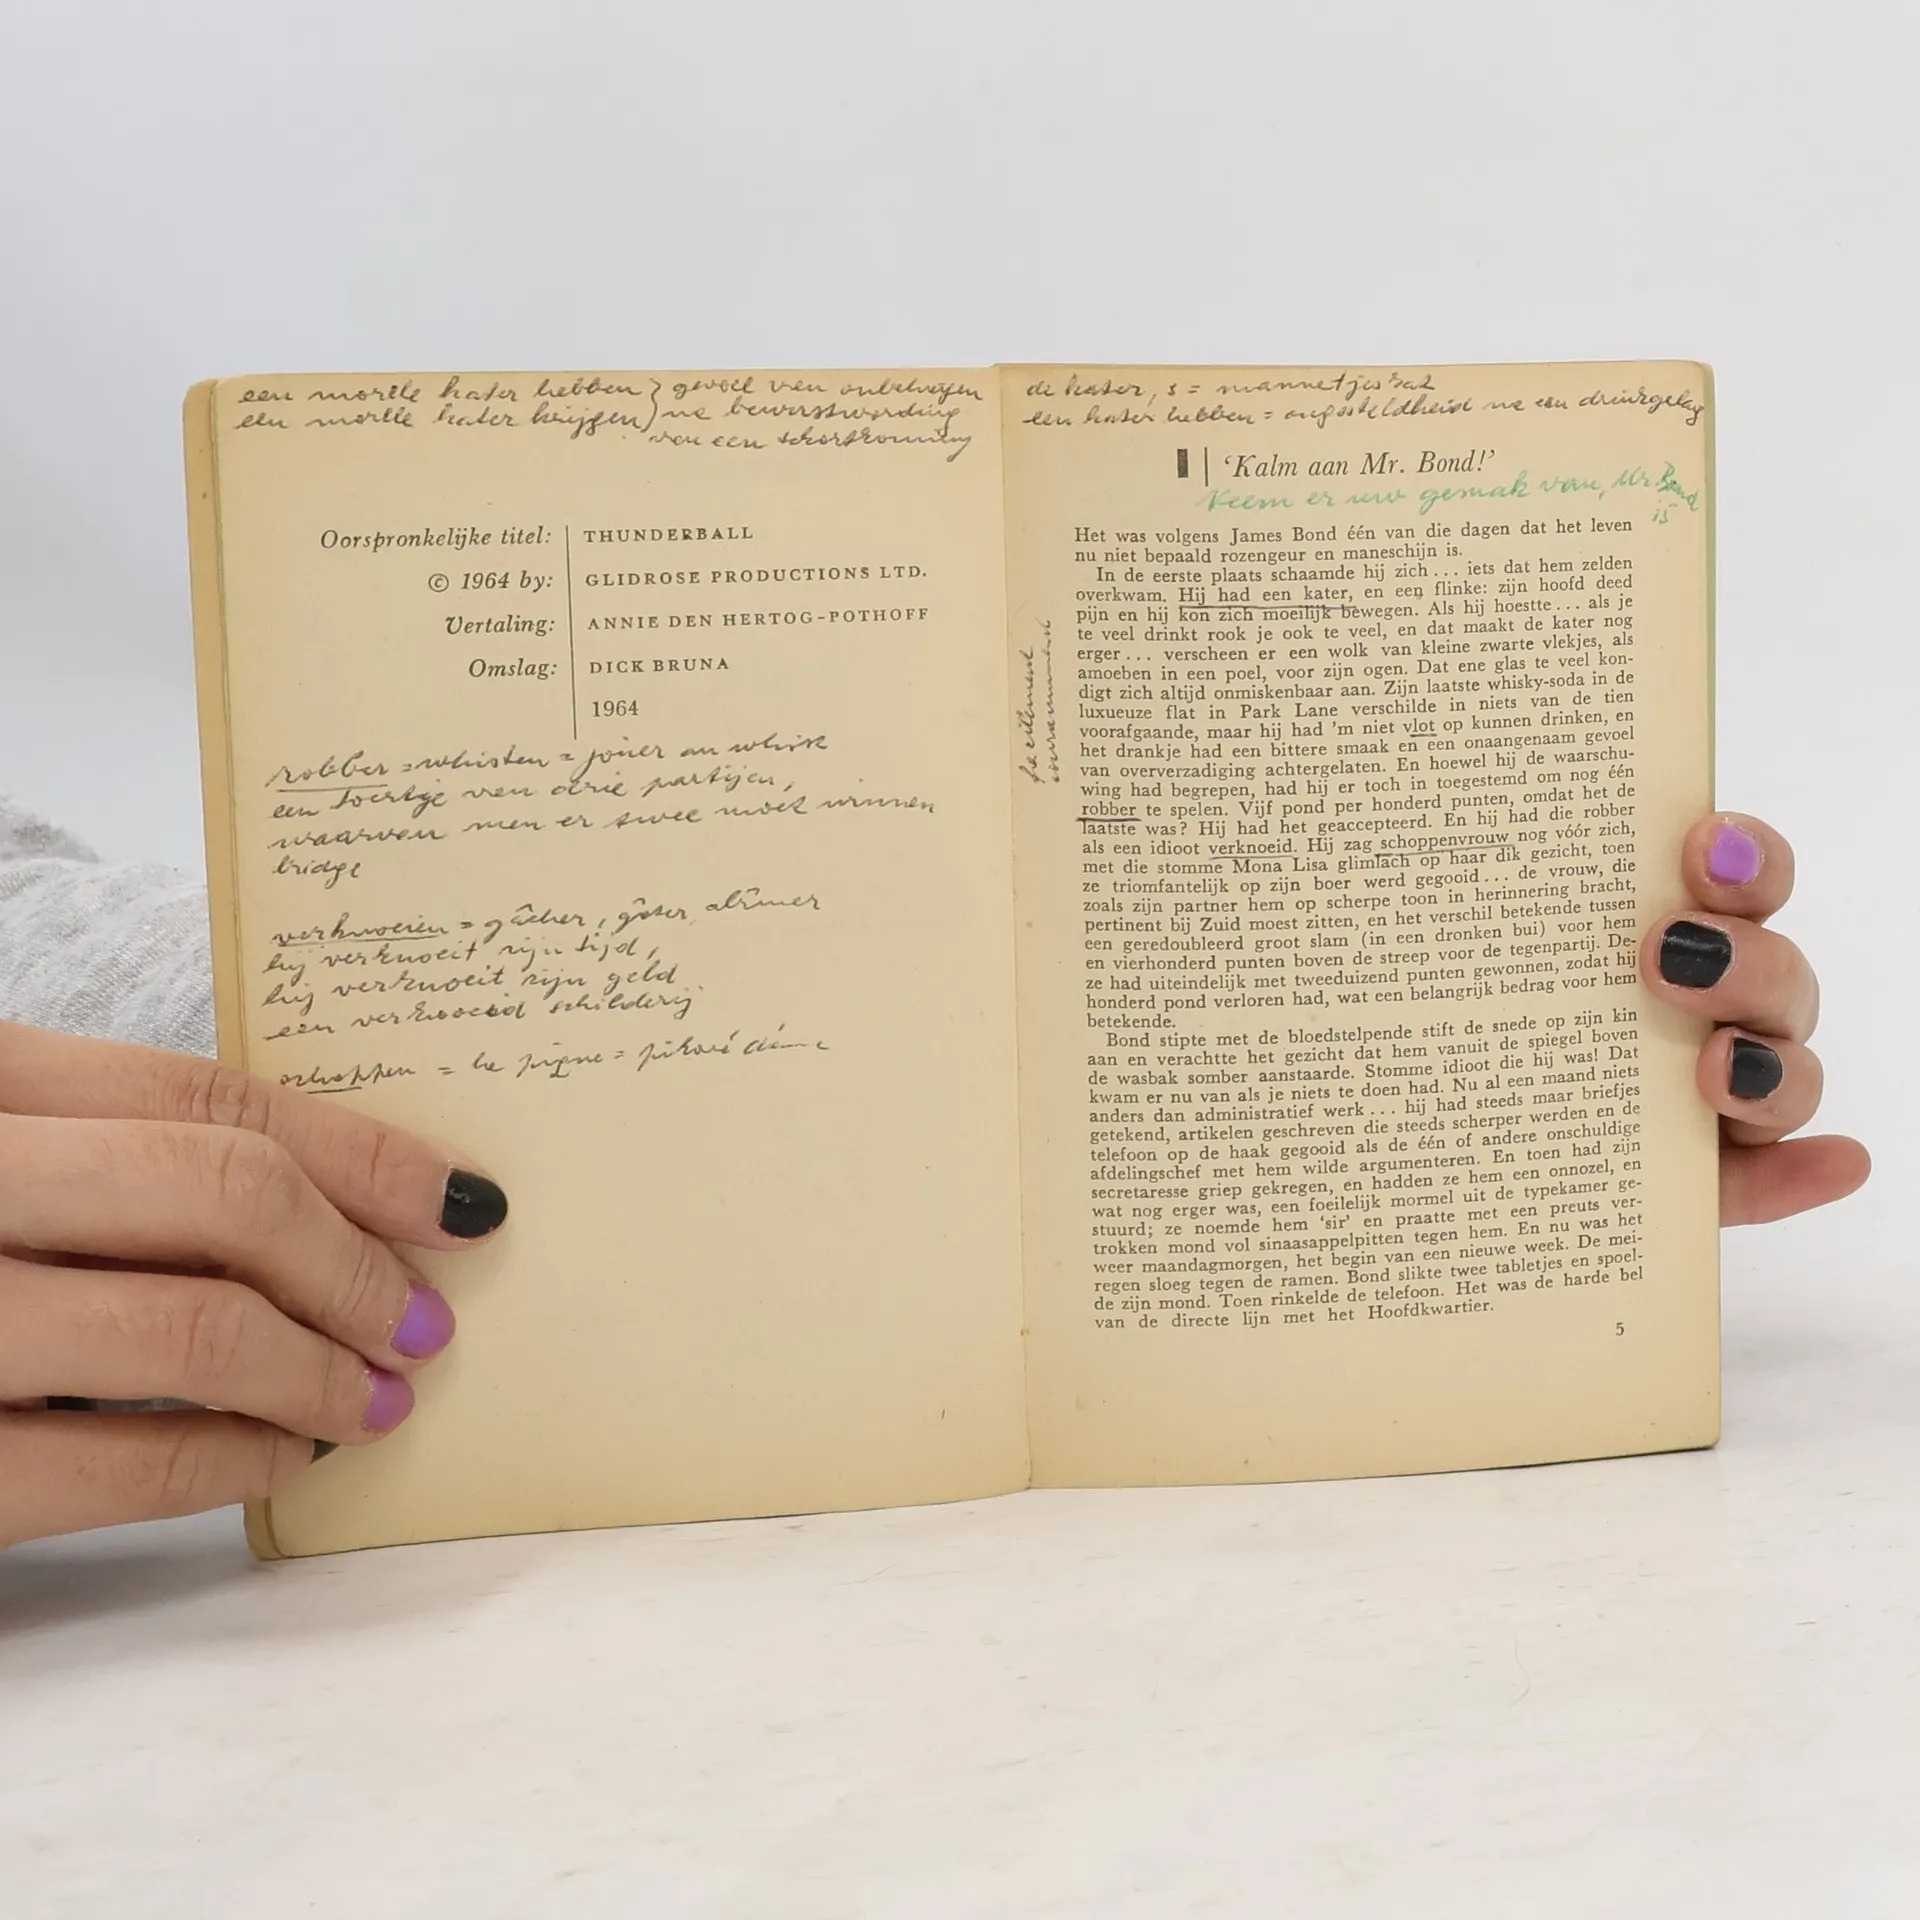 een morele kater hebben } gevoel van onbehagen
een morele kater krijgen ) na bewustwording
van een tekortkoming
Oorspronkelijke titel: THUNDERBALL
© 1964 by: GLIDROSE PRODUCTIONS LTD.
Vertaling: ANNIE DEN HERTOG-POTHOFF
Omslag: DICK BRUNA
1964
robber = whisten = jouer au whist
een toertje van drie partijen,
waarvan men er twee moet winnen
bridge
verknoeien = gâcher, gâter, abîmer
hij verknoeit zijn tijd,
hij verknoeit zijn geld
een verknoeid schilderij
schoppen = le pique =
de kater, s = mannetjeskat
een kater hebben = ongesteldheid na een drinkgelag
I 'Kalm aan Mr. Bond!'
Neem er uw gemak van, Mr. Bond
Het was volgens James Bond één van die dagen dat het leven
nu niet bepaald rozengeur en maneschijn is.
In de eerste plaats schaamde hij zich... iets dat hem zelden
overkwam. Hij had een kater, en een flinke: zijn hoofd deed
pijn en hij kon zich moeilijk bewegen. Als hij hoestte... als je
te veel drinkt rook je ook te veel, en dat maakt de kater nog
erger... verscheen er een wolk van kleine zwarte vlekjes, als
amoeben in een poel, voor zijn ogen. Dat ene glas te veel kon-
digt zich altijd onmiskenbaar aan. Zijn laatste whisky-soda in de
luxueuze flat in Park Lane verschilde in niets van de tien
voorafgaande, maar hij had 'm niet vlot op kunnen drinken, en
het drankje had een bittere smaak en een onaangenaam gevoel
van oververzadiging achtergelaten. En hoewel hij de waarschu-
wing had begrepen, had hij er toch in toegestemd om nog één
robber te spelen. Vijf pond per honderd punten, omdat het de
laatste was? Hij had het geaccepteerd. En hij had die robber
als een idioot verknoeid. Hij zag schoppenvrouw nog vóór zich,
met die stomme Mona Lisa glimlach op haar dik gezicht, toen
ze triomfantelijk op zijn boer werd gegooid... de vrouw, die
zoals zijn partner hem op scherpe toon in herinnering bracht,
pertinent bij Zuid moest zitten, en het verschil betekende tussen
een geredoubleerd groot slam (in een dronken bui) voor hem
en vierhonderd punten boven de streep voor de tegenpartij. De-
ze had uiteindelijk met tweeduizend punten gewonnen, zodat hij
honderd pond verloren had, wat een belangrijk bedrag voor hem
betekende.
Bond stipte met de bloedstelpende stift de snede op zijn kin
aan en verachtte het gezicht dat hem vanuit de spiegel boven
de wasbak somber aanstaarde. Stomme idioot die hij was! Dat
kwam er nu van als je niets te doen had. Nu al een maand niets
anders dan administratief werk... hij had steeds maar briefjes
getekend, artikelen geschreven die steeds scherper werden en de
telefoon op de haak gegooid als de één of andere onschuldige
afdelingschef met hem wilde argumenteren. En toen had zijn
secretaresse griep gekregen, en hadden ze hem een onnozel, en
wat nog erger was, een foeilelijk mormel uit de typekamer ge-
stuurd; ze noemde hem 'sir' en praatte met een preuts ver-
trokken mond vol sinaasappelpitten tegen hem. En nu was het
weer maandagmorgen, het begin van een nieuwe week. De mei-
regen sloeg tegen de ramen. Bond slikte twee tabletjes en spoel-
de zijn mond. Toen rinkelde de telefoon. Het was de harde bel
van de directe lijn met het Hoofdkwartier.
5